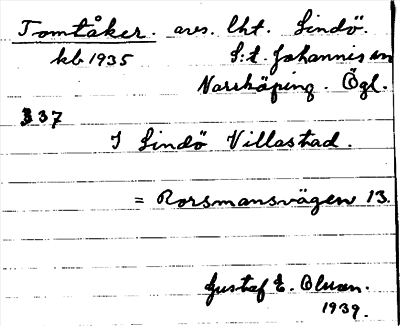 Tomtåker. avs. lht. Lindö.
kb 1935 S:t Johannis sn
Norrköping. Ögl.
337
I Lindö Villastad.
= Rorsmansvägen 13.
Gustaf E. Olsson.
1939.